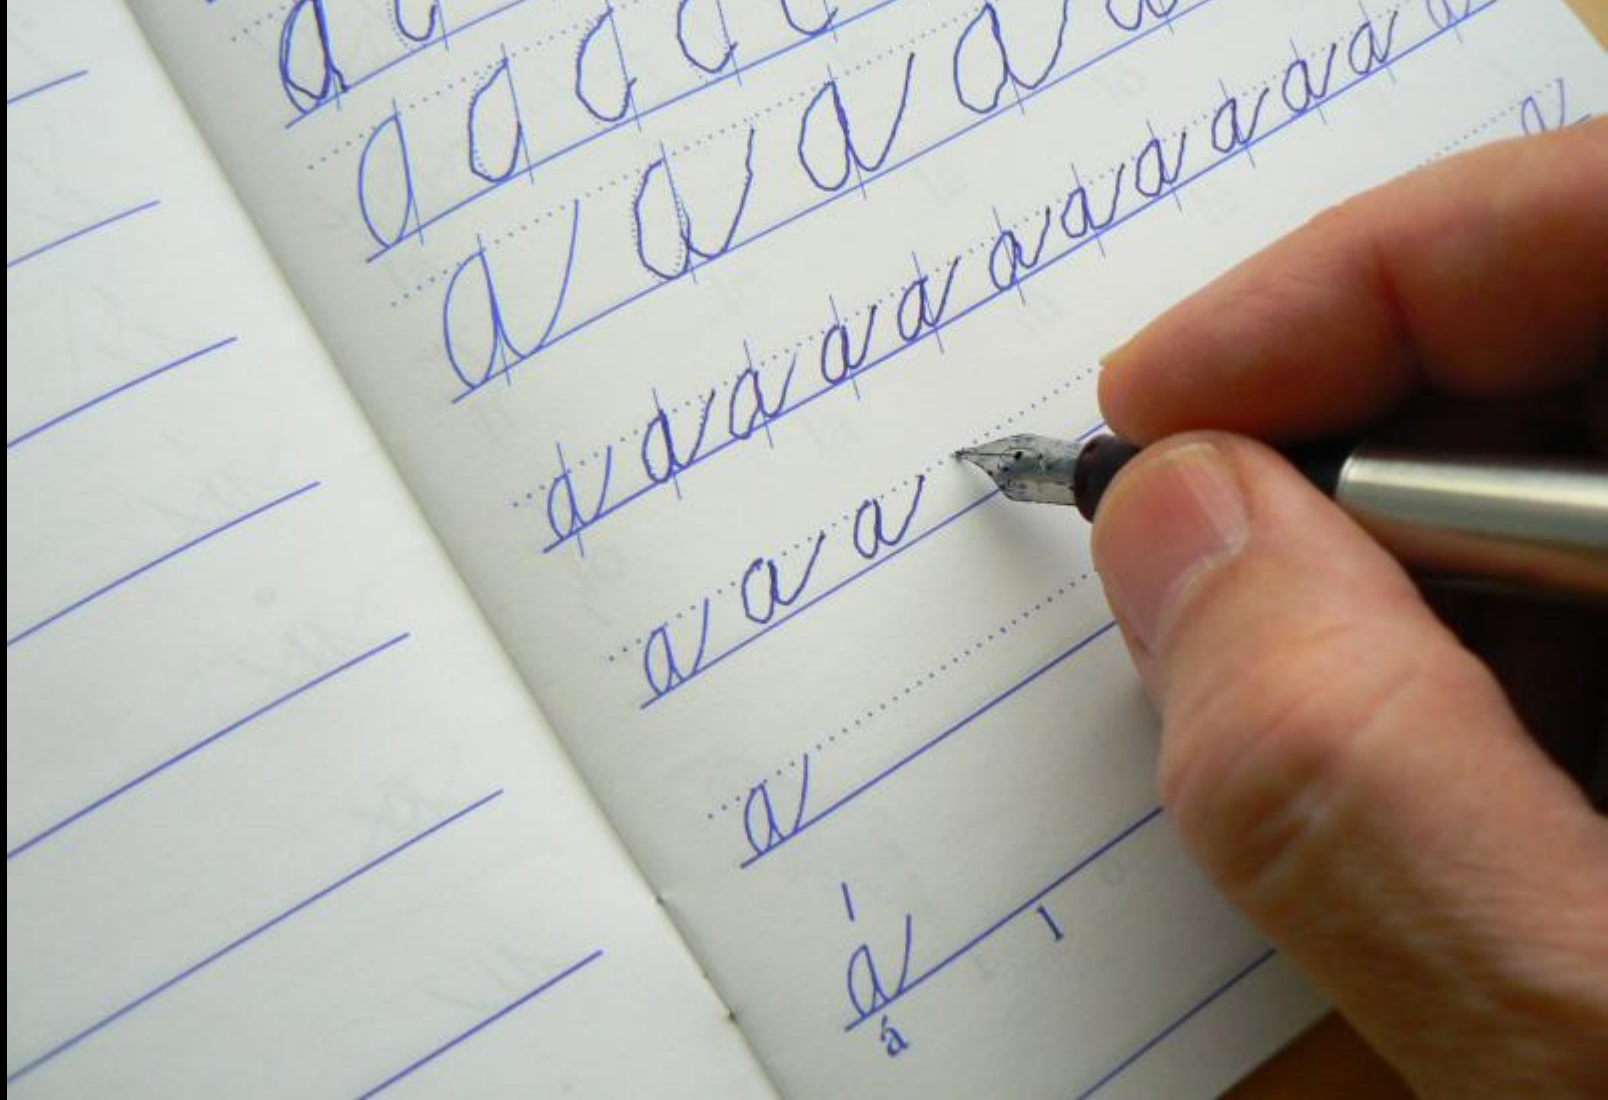 a
a a a a
a a a a a
a a a a a a a a a a a a
a a a a
a
á l
á